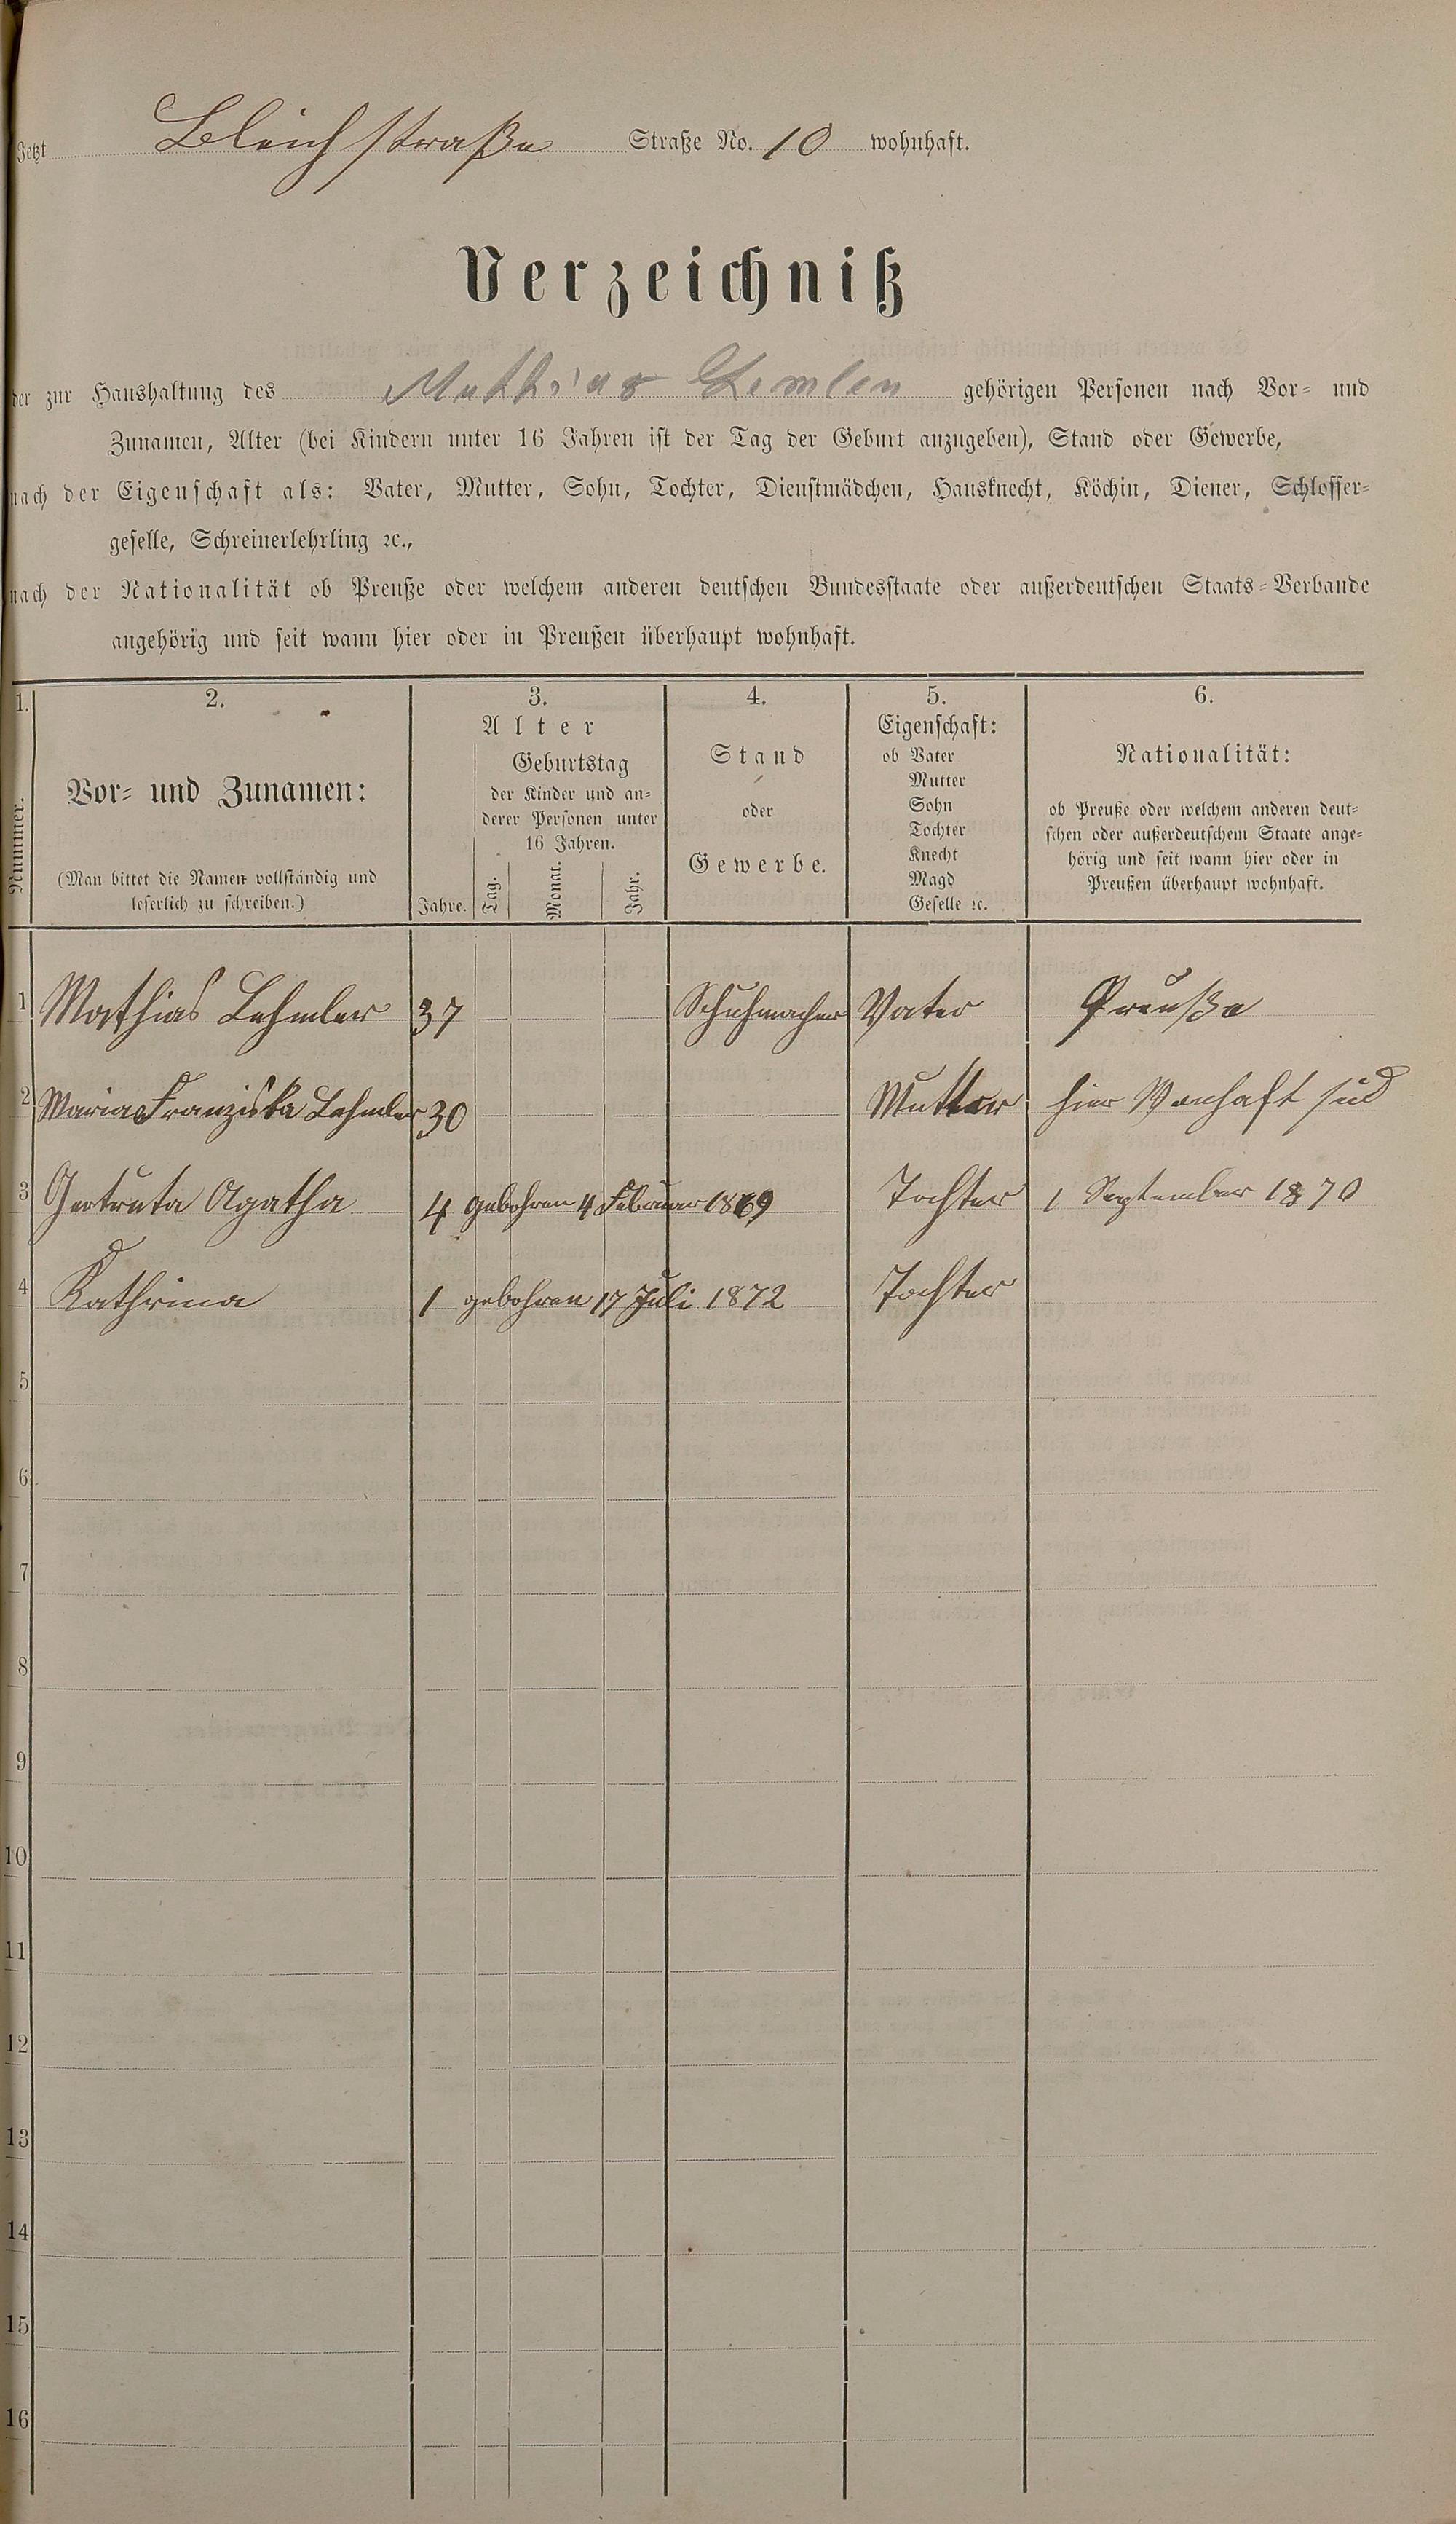 Jetzt Bleichstraße Straße No. 10 wohnhaft.
Verzeichniß
der zur Haushaltung des Mathias Lemler gehörigen Personen nach Vor- und
Zunamen, Alter (bei Kindern unter 16 Jahren ist der Tag der Geburt anzugeben), Stand oder Gewerbe,
nach der Eigenschaft als: Vater, Mutter, Sohn, Tochter, Dienstmädchen, Hausknecht, Köchin, Diener, Schlosser-
geselle, Schreinerlehrling ꝛc.,
nach der Nationalität ob Preuße oder welchem anderen deutschen Bundesstaate oder außerdeutschen Staats-Verbande
angehörig und seit wann hier oder in Preußen überhaupt wohnhaft.
1.
Nummer.
2.
Vor- und Zunamen:
(Man bittet die Namen vollständig und
leserlich zu schreiben.)
3.
Alter
Geburtstag
der Kinder und an-
derer Personen unter
16 Jahren.
Jahre. Tag. Monat. Jahr.
4.
Stand
oder
Gewerbe.
5.
Eigenschaft:
ob Vater
Mutter
Sohn
Tochter
Knecht
Magd
Geselle ꝛc.
6.
Nationalität:
ob Preuße oder welchem anderen deut-
schen oder außerdeutschem Staate ange-
hörig und seit wann hier oder in
Preußen überhaupt wohnhaft.
1 Mathias Lehmler 37 Schuhmacher Vater Preuße
2 Maria Franziska Lehmler 30 Mutter hier Wonhaft seid
3 Gertruta Agatha 4 gebohren 4 Februar 1869 Tochter 1 September 1870
4 Kathrina 1 gebohren 17 Juli 1872 Tochter
5
6
7
8
9
10
11
12
13
14
15
16